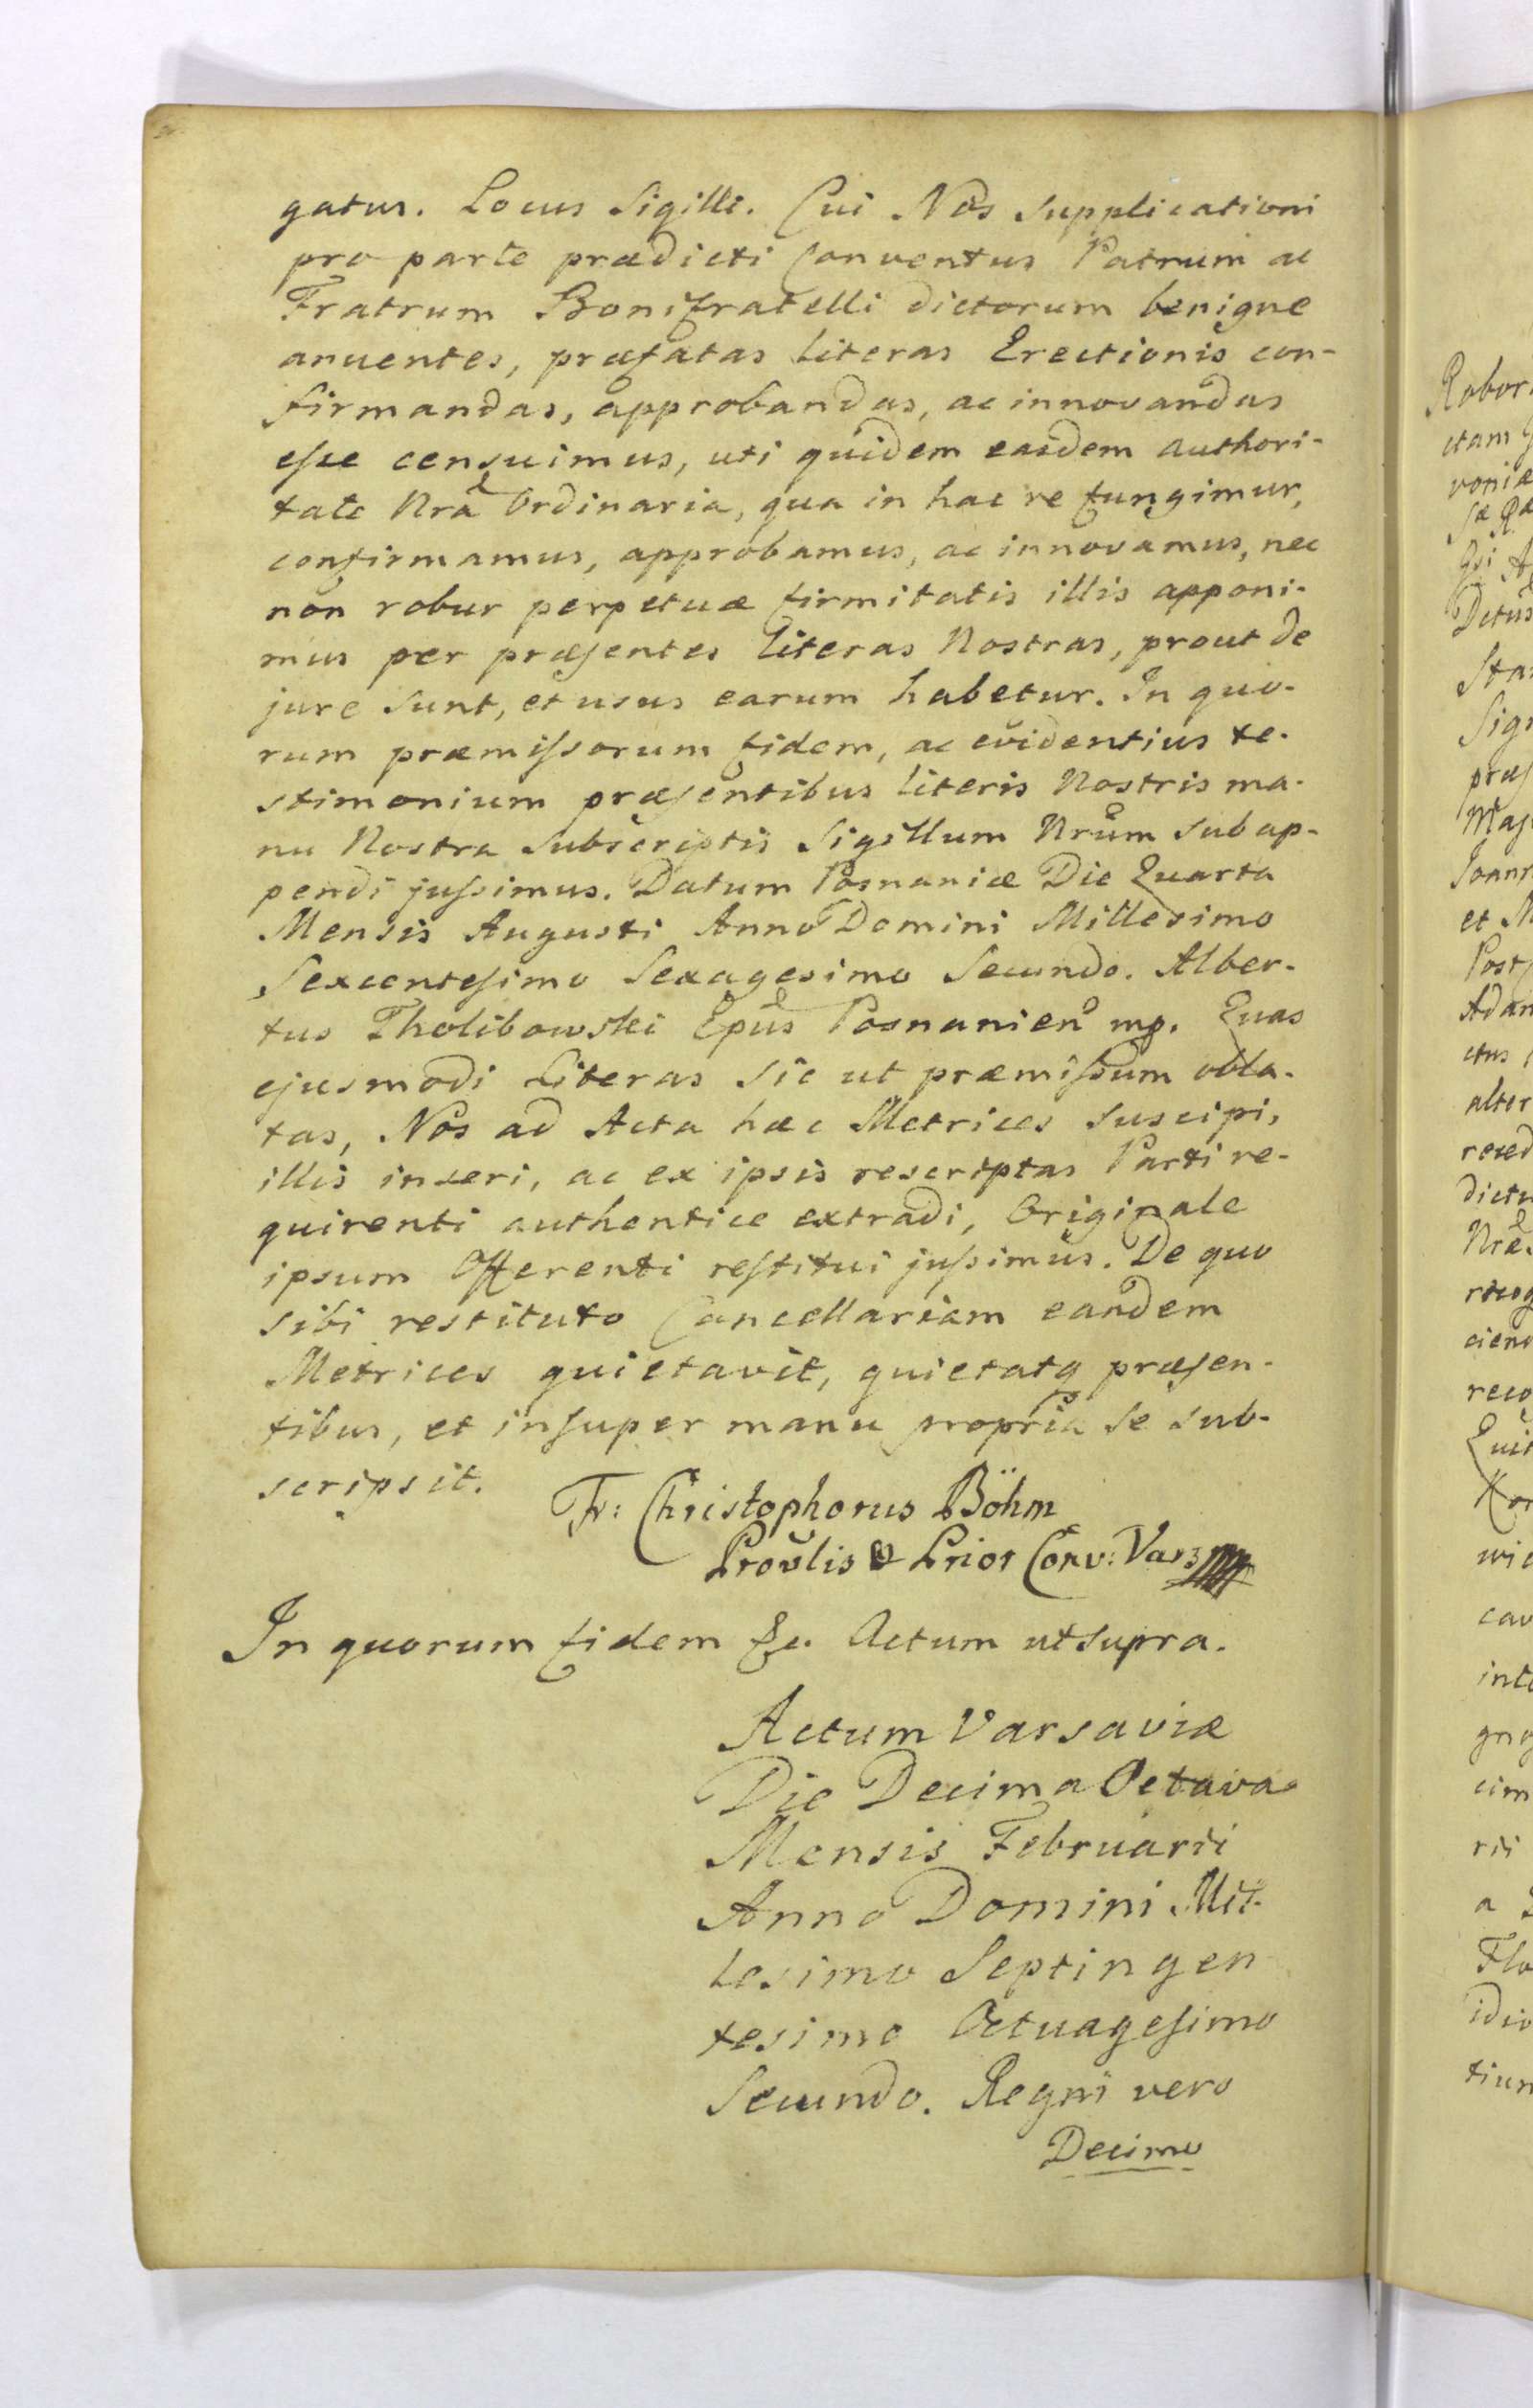 gatus. Locus Sigilli. Cui Nos Supplicationi
pro parte prædicti Conventus Patrum ac
Fratrum Bonifratelli dictorum benigne
anuentes, præfatas literas Erectionis con-
firmandas, approbandas, ac innovandas
eſse censuimus, uti quidem easdem authori-
tate Nrâ Ordinaria, qua in hac re fungimur,
confirmamus, approbamus, ac innovamus, nec
non robur perpetuæ firmitatis illis apponi-
mus per præſentes literas Nostras, prout de
jure sunt, et usus earum habetur. In quo-
rum præmiſsorum fidem, ac evidentius te-
stimonium præſentibus literis Nostris ma-
nu Nostra Subscriptis Sigillum Nrum subap-
pendi juſsimus. Datum Posnaniæ Die Quarta
Mensis Augusti Anno Domini Millesimo
Sexcenteſimo Sexagesimo Secundo. Alber-
tus Tholibowski Epus Posnanien mp. Quas
ejusmodi Literas sic ut præmiſsum obla-
tas, Nos ad Acta hæc Metrices suscipi,
illis inseri, ac ex ipsis rescriptas Parti re-
quirenti authentice extradi, Originale
ipsum Offerenti reſtitui juſsimus. De quo
sibi restituto Cancellariam eandem
Metrices quietavit, quietatq præſen-
tibus, et inſuper manu propria se sub-
scripsit.
Fr: Christophorus Böhm
Provlis & Prior Conv: Vars
In quorum fidem &c. Actum ut supra.
Actum Varsaviæ
Die Decima Octava
Mensis Februarii
Anno Domini Mil-
lesimo Septingen
tesimo Octuageſimo
Secundo. Regni vero
Decimo